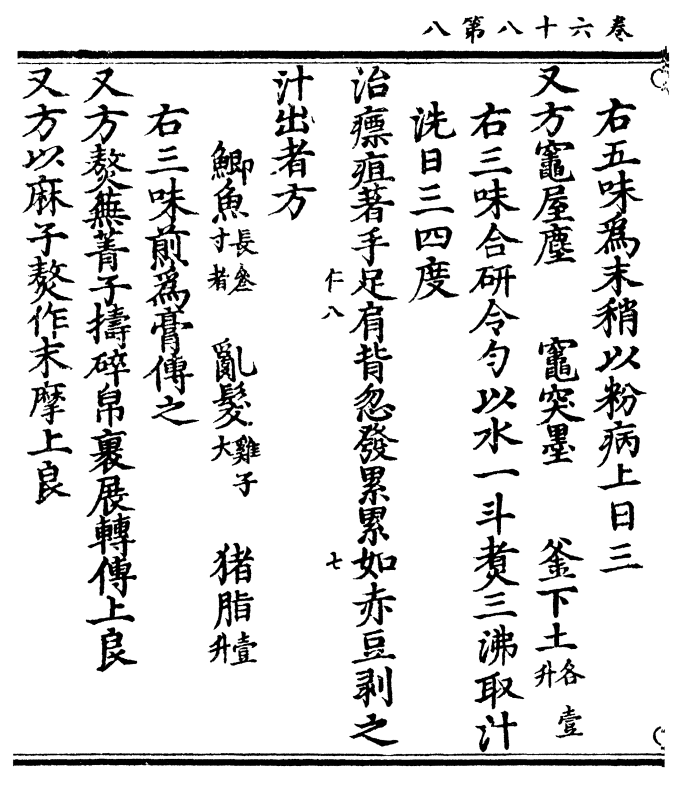 卷六十八第八
右五味爲末稍以粉病上日三
又方竈屋塵 竈突墨 釜下土各壹升
右三味合研令勻以水一斗煑三沸取汁
洗日三四度
治瘭疽著手足肩背忽發累累如赤豆剥之
仁八
七
汁出者方
鯽魚長叁寸者 亂髮雞子大 猪脂壹升
右三味煎爲膏傅之
又方熬蕪菁子擣碎帛裹展轉傅上良
又方以麻子熬作末摩上良